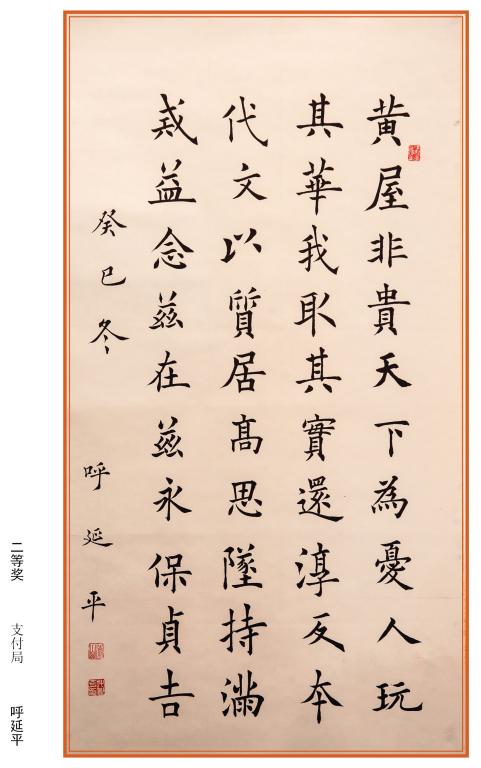 黄屋非貴天下為憂人玩
其華我取其實還淳反本
代文以質居髙思墜持滿
戒益念兹在兹永保貞吉
癸巳冬
呼延平
二等奖 支付局 呼延平